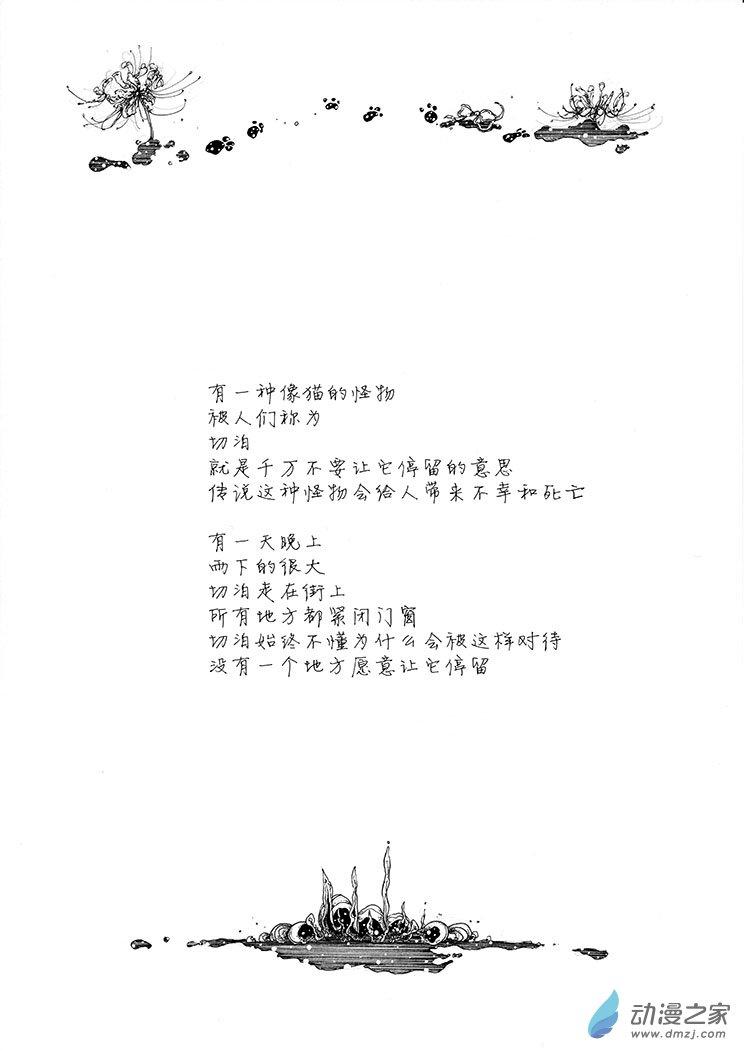 有一种像猫的怪物
被人们称为
切泊
就是千万不要让它停留的意思
传说这种怪物会给人带来不幸和死亡
有一天晚上
雨下的很大
切泊走在街上
所有地方都紧闭门窗
切泊始终不懂为什么会被这样对待
没有一个地方愿意让它停留
动漫之家
www.dmzj.com